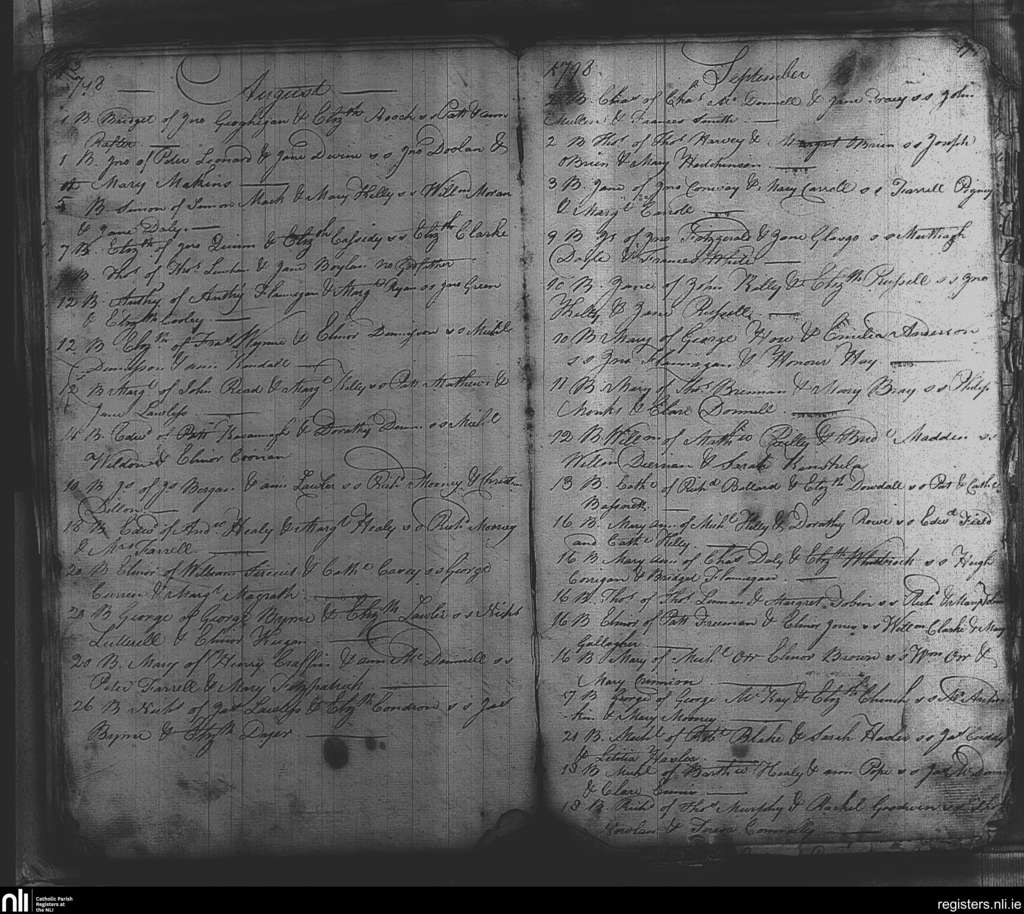 1798
August
1 B. Bridget of Jno Geoghegan & Elizth Hooch ss Patt &
Rafter
1 B. Jno of Peter Leonard & Jane Divine ss Jno Doolan &
Mary Makins
5 B Simon of Simon Mack & Mary Kelly ss Willm Moran
& Jane Daly.
7 B. Elizth of Jno Quinn & Elizth Cassidy ss Elizth Clarke
B. Thos of Thos Linehan & Jane Boylan no Godfather
12 B Anthy of Anthy Flannigan & Margt Ryan ss Jno Green
& Elizth Cooley
12 B Elizth of Fras Wynne & Elinor Dennisson ss Michl
Dennisson & ann Kendall
12 B Margt of John Read & Margt Kelly ss Patt Mathews &
Jane Lawless
15 B. Edwd of Patt Kavanagh & Dorathy Dunn ss Michl
Weldon & Elinor Coonan
19 B Js of Js Bergan & ann Lawler ss Richd Mooney &
Dillon
18 B Edwd of Andw Healy & Margt Healy ss Richd Mooney
& Mrs Farrell
20 B Elinor of William & Cathe Carey ss George
Currin & Margt Magrath
20 B George of George Wynne & Elizth Lawler ss Nichs
Luttrell & Elinor Wilson
20 B. Mary of Henry Craffin & ann Mc Donnell ss
Peter Farrell & Mary Fitzpatrick
26 B Nichs of Jas Lawless & Elizth Condron ss Jas
Byrne & Elizth Dwyer
1798
September
2 B Chas of Chas Mc Donnell & Jane Tracy ss John
Mullen & Frances Smith
2 B Thos of Thos Harvey & Margret OBrien ss Joseph
OBrien & Mary Hutchinson
3 B. Jane of Jno Conway & Mary Carroll ss Farrell
& Margt Carroll
9 B Js of Jno Fitzgerald & Jane Glasgo ss Murthagh
Doyle & Frances White
10 B. Jane of John Kelly & Elizth Russell ss Jno
Kelly & Jane Russell
10 B Mary of George How & Emilia Anderson
ss Jno Flannagan & Honour Hoy
11 B Mary of Thos Brennan & Mary Bray ss Philip
Monks & Clare Donnell
12 B Willm of Mathw Reilly & Bridt Madden ss
Willm Deernan & Sarah
13 B. Cathe of Richd Bollard & Elizth Dowdall ss Pat & Cathe
Bassnett
16 B. Mary ann of Michl Kelly & Dorathy Rowe ss Edwd Field
and Cathe Kelly
16 B Mary ann of Chas Daly & Elizth ss Hugh
Corrigan & Bridget Flannigan
16 B. Thos of Thos Lennan & Margret Tobin ss Richd & Margt Tobin
16 B Elinor of Patt Freeman & Elinor Jones ss Willm Clarke & Mary
Gallagher
16 B Mary of Michl Orr Elinor Brown ss Wm Orr &
Mary Cannion
17 B George of George Mc Kay & Elizth Church ss
& Mary Mooney
21 B. Michl of Robt Blake & Sarah Hader ss Jas
& Letitia Hayler
18 B Michl of Barthw Healy & ann Pope ss Jas
& Clare
18 B Richd of Thos Murphy & Rachel Goodwin ss
Nowlan & Connolly
nli
Catholic Parish
Registers at
the NLI
registers.nli.ie